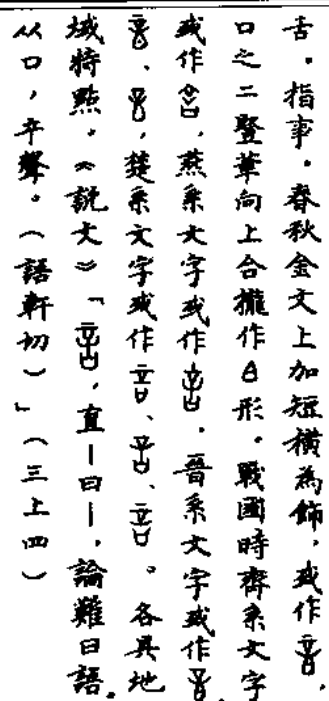 舌。指事。春秋金文上加短橫為飾，或作
口之二豎筆向上合攏作形。戰國時齊系文字
或作，燕系文字或作，晉系文字或作
、，楚系文字或作、、。各具地
域特點。《說文》「，直｜曰｜，論難曰語。
从口，䇂聲。（語軒切）」（三上四）